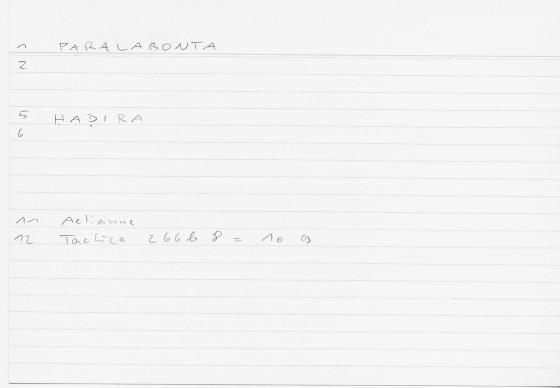 1 PARALABONTA
2
5 ḤAḌIRA
6
11 Aelianus
12 Tactica 266b 8 = 10.09